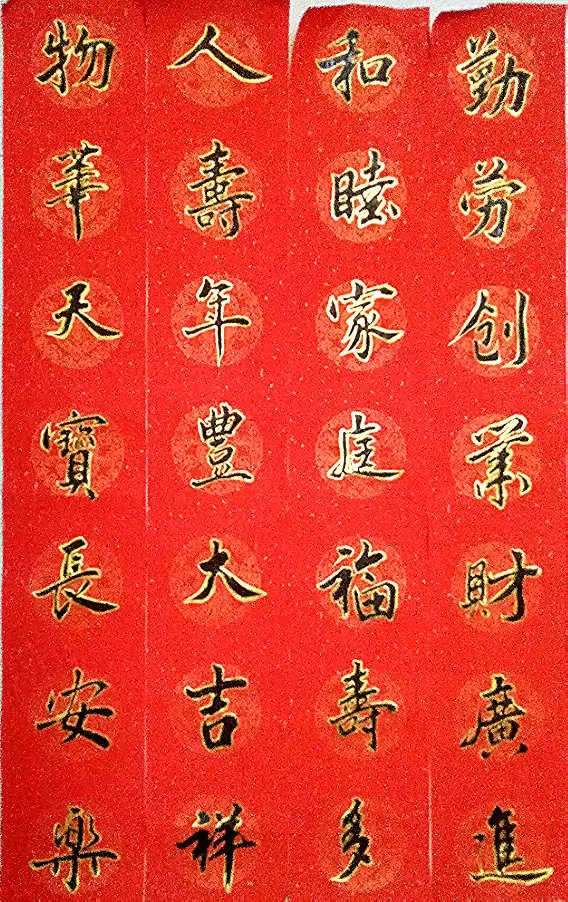 勤劳创業財廣進
和睦家庭福壽多
人壽年豐大吉祥
物華天寶長安樂